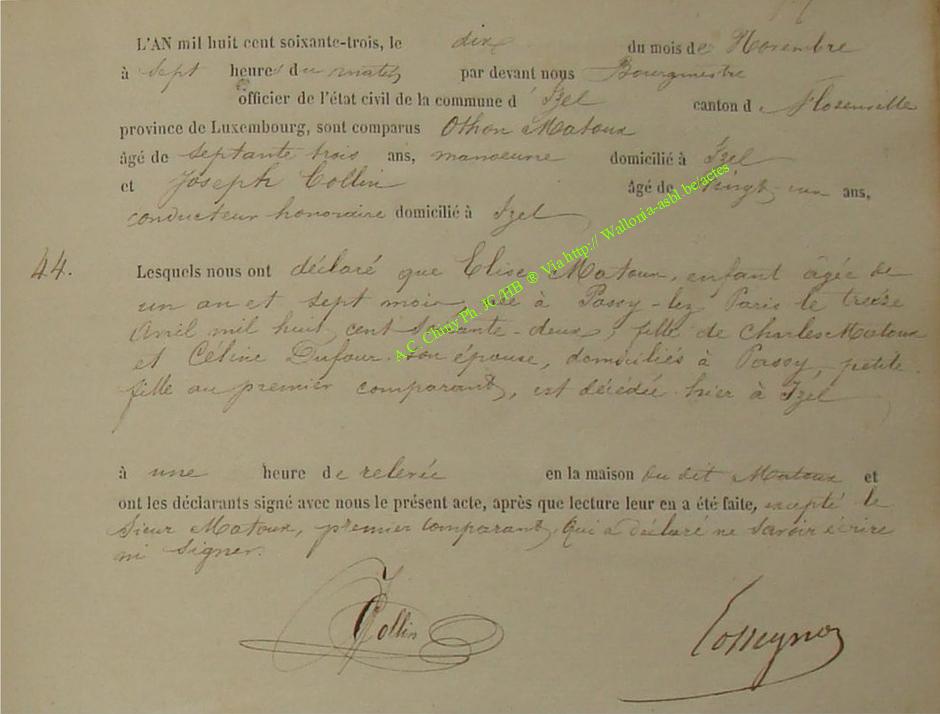 L'AN mil huit cent soixante-trois, le dix du mois de Novembre
à sept heures du matin par devant nous Bourgmestre
officier de l'état civil de la commune d' Izel canton de Florenville
province de Luxembourg, sont comparus Othon Matoux
âgé de septante trois ans, manoeuvre domicilié à Izel
et Joseph Collin âgé de vingt-un ans,
conducteur honoraire domicilié à Izel
44. Lesquels nous ont déclaré que Elise Matoux, enfant âgée de
un an et sept mois, née à Passy-lez Paris le treize
Avril mil huit cent soixante-deux, fille de Charles Matoux
et Céline Dufour son épouse, domiciliés à Passy, petite
fille au premier comparant, est décédée hier à Izel
à une heure de relevée en la maison du dit Matoux et
ont les déclarants signé avec nous le présent acte, après que lecture leur en a été faite, excepté le
Sieur Matoux, premier comparant, qui a déclaré ne savoir écrire
ni signer.
J Collin
A.C. Chiny Ph. JC/HB ® Via http:// Wallonia-asbl.be/actes